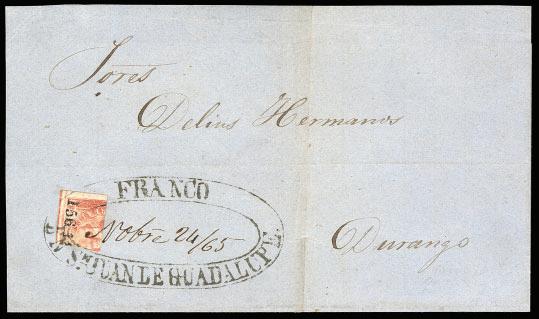 Sores
Delius Hermanos
FRANCO
156
Nobre 24/65
S. JUAN LE GUADALUPE
Durango